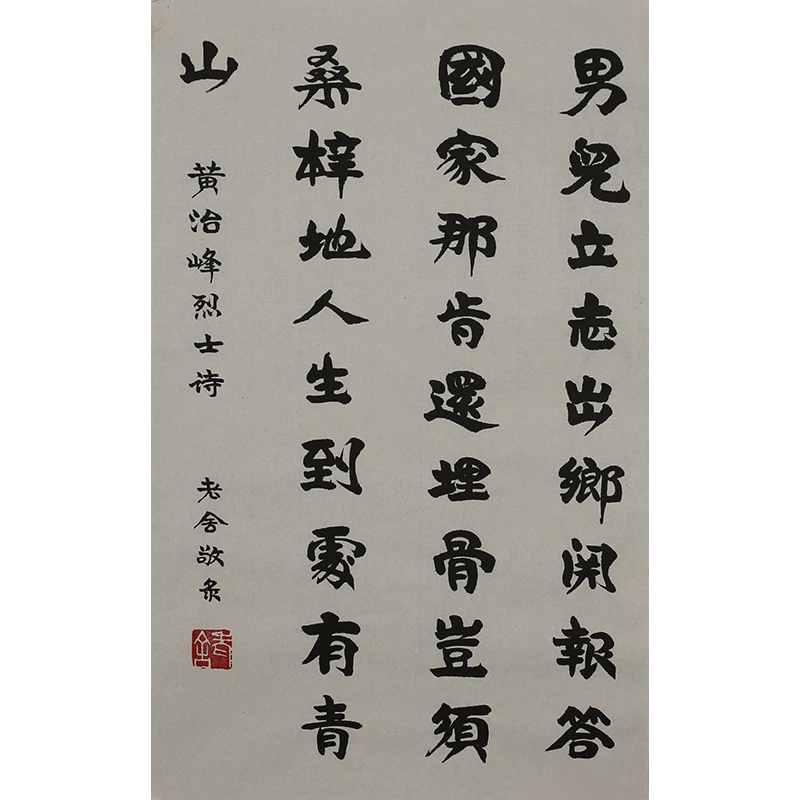 男兒立志出鄉関報答
國家那肯還埋骨豈須
桑梓地人生到處有青
山
黄治峰烈士诗
老舍敬录
老舍